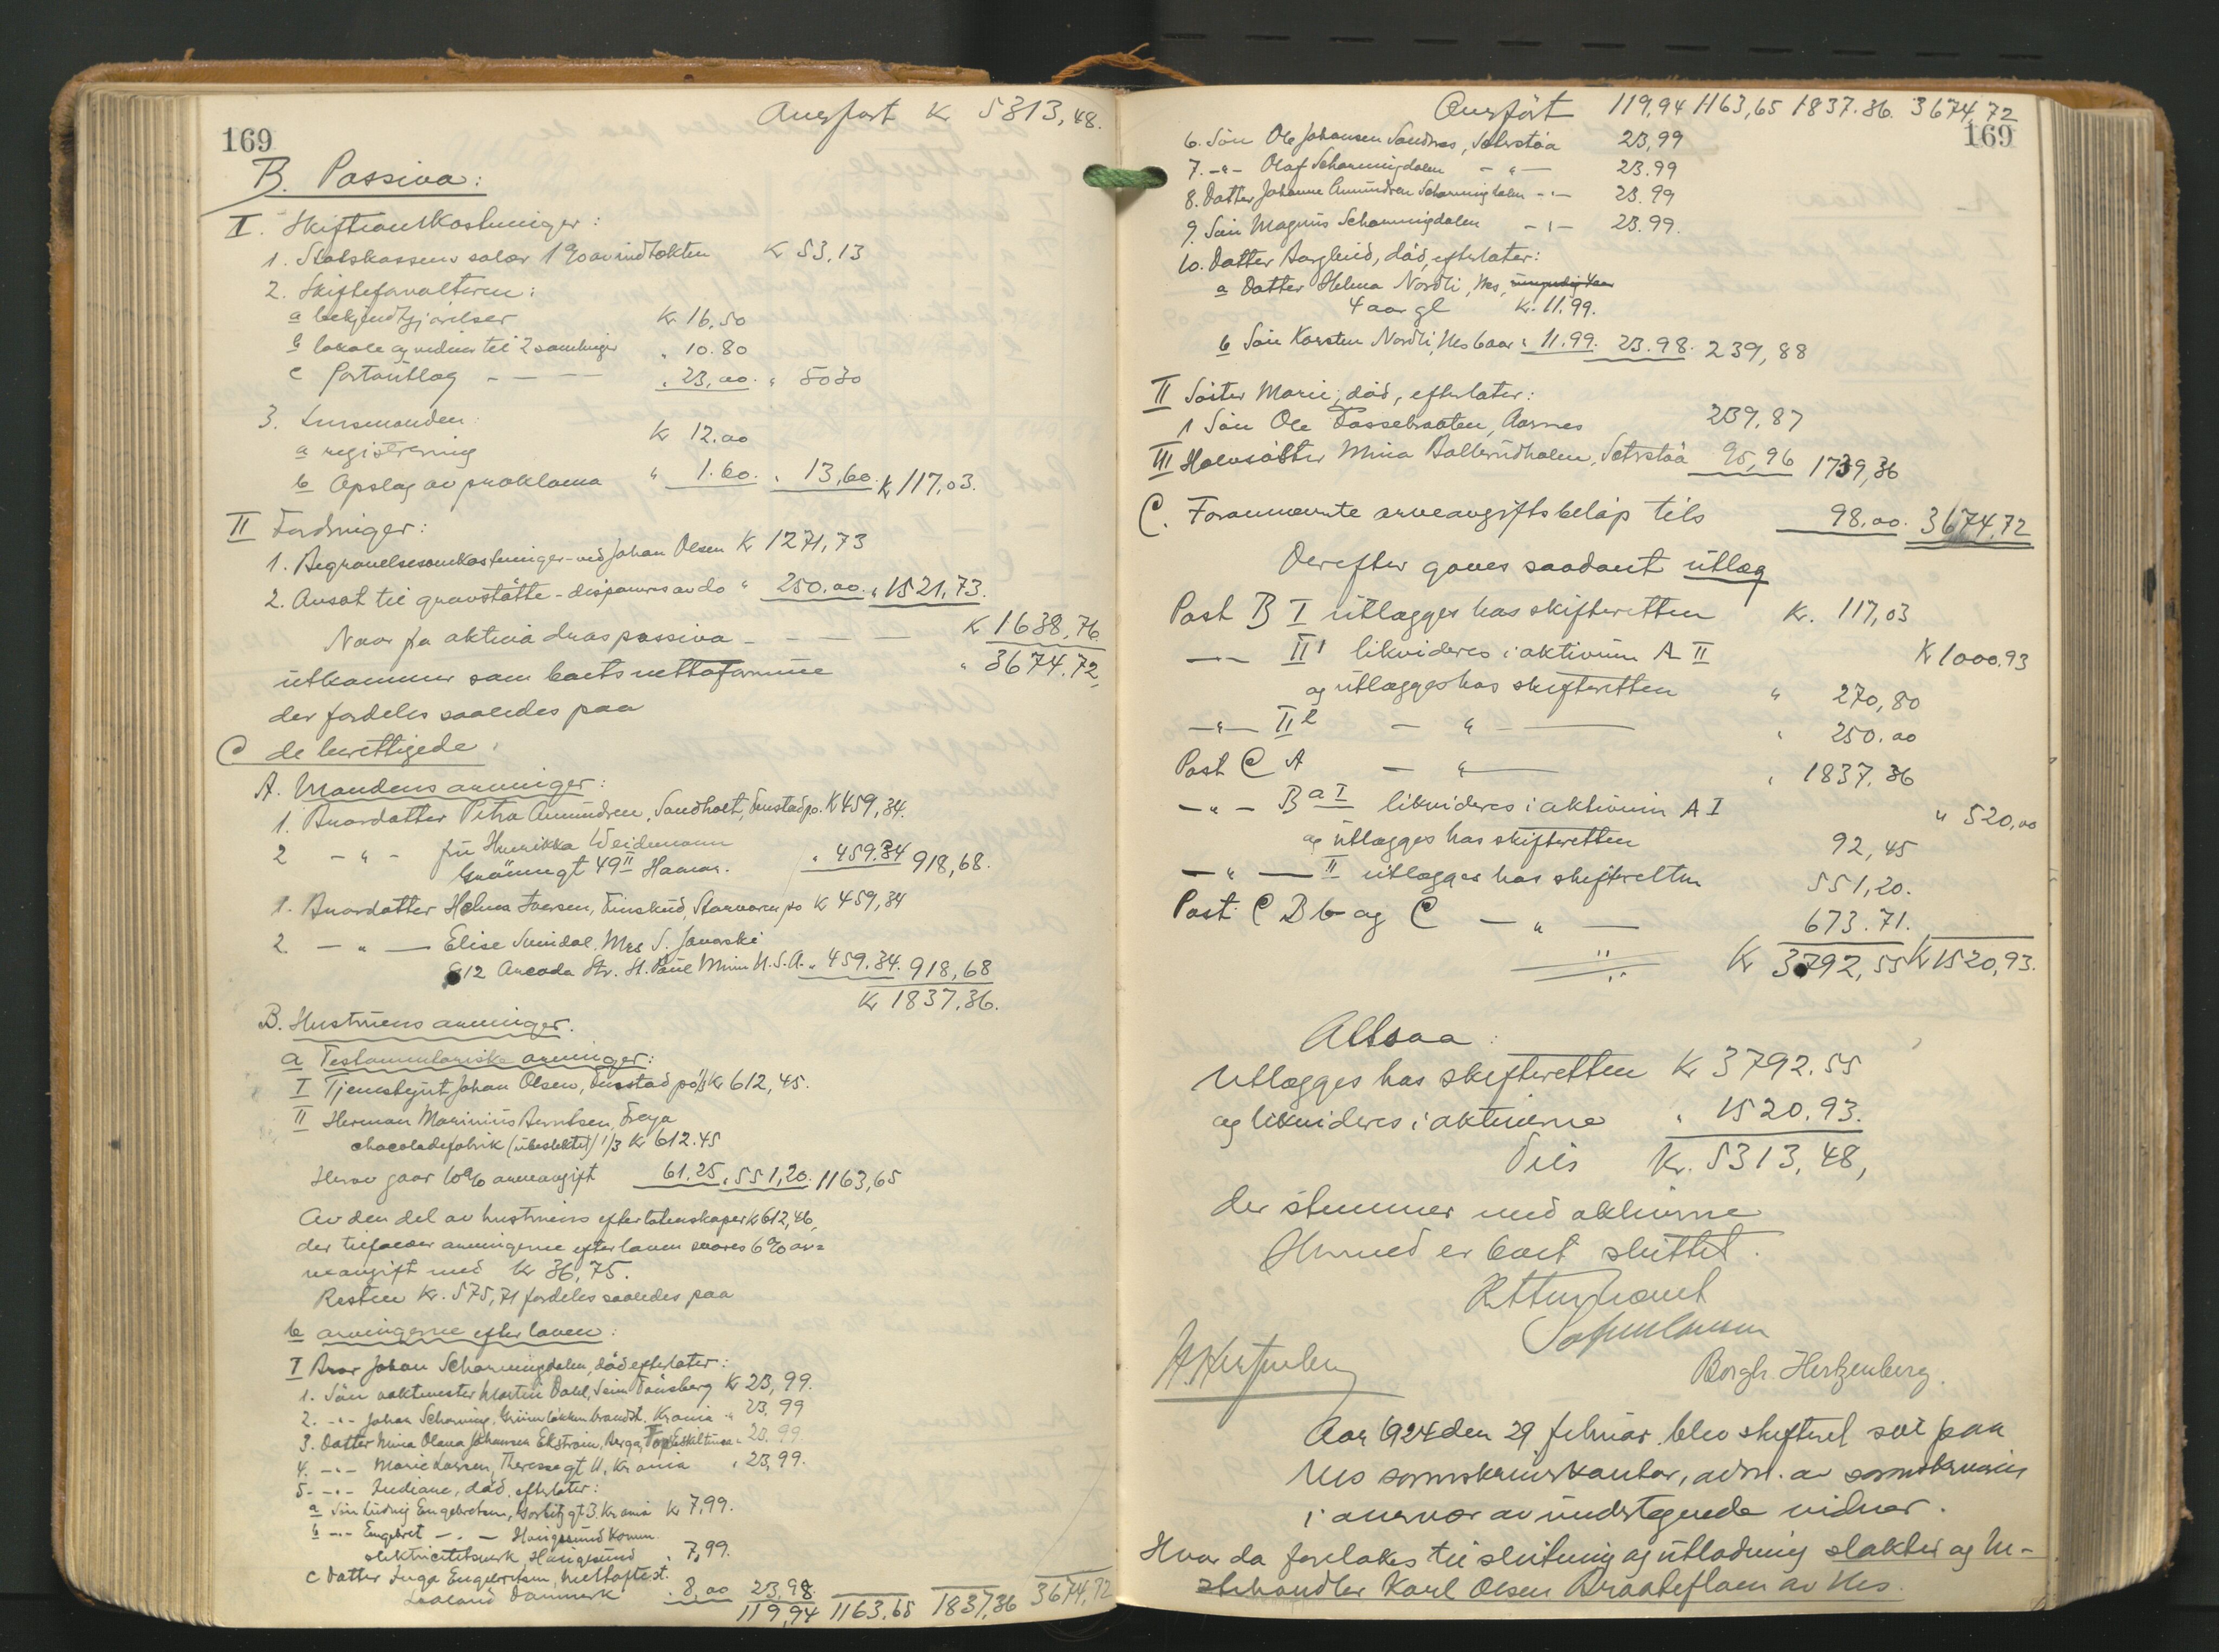 169
Overført Kr 5313,48.
B. Passiva:
I. Skifteomkostninger:
1. Statskassens salær 1% av indtækten Kr 53,13
2. Skifteforvalteren:
a bekjendtgjørelser Kr 16,50
b lokale og vidner til 2 samlinger " 10.80
c Portoutlæg - - - " 23,00. " 5030
3. Lensmanden:
a registrering Kr 12.00
b Opslag av proklama " 1.60. " 13,60. Kr 117,03.
II Fordringer:
1. Begravelsesomkostninger ved Johan Olsen Kr 1271,73
2. Avsat til gravstøtte - disponeres av do " 250.00. " 1521,73.
Kr 1638,76.
Naar fra aktiva dras passiva - - -
utkommer som boets nettoformue " 3674.72,
der fordeles saaledes paa
C de berettigede.
A. Mandens arvinger:
1. Brordatter Petra Amundsen, Sandholt, Fenstad po. Kr 459,34.
2 - " - fru Henrikka Weidemann
Grønnegt 49 II Hamar. " 459.34 918,68.
1. Brordatter Helma Iversen, Finskud, Skarnæs po Kr 459,34
2. - " - Elise Smidal. Mrs S. Janoski
812 Arcade Str. St. Paul Minn U.S.A. " 459.34. 918,68
Kr 1837.36.
B. Hustruens arvinger.
a Testamentariske arvinger:
I Tjenestegut Johan Olsen, Fenstad po 1/3 Kr 612,45.
II Herman Marinius Berntsen, Freya
chocoladefabrik (ubeslektet) 1/3 Kr 612.45
Herav gaar 10% arveavgift 61.25. " 551,20. 1163,65
Av den del av hustruens efterlatenskaper Kr 612,46,
der tilfalder arvingerne efter loven svares 6% ar-
veavgift med Kr 36,75.
Resten Kr. 575,71 fordeles saaledes paa
b arvingerne efter loven:
I Bror Johan Schanningdalen, død efterlater:
1. Søn vaktmester Martin Dahl, Seim Tønsberg Kr 23,99.
2. - " - Johan Schanning, Grünerløkken brandst. Krania " 23,99
3. Datter Mina Olava Johansen Ekstrøm, Berga, Eskiltuna " 23.99
4. - " - Marie Larsen, Theresegt 11, Krania " 23,99.
5. - " - Indiane, død, efterlater:
a Søn Ludvig Engebretsen, Gørbitzgt 3. Krania Kr 7,99.
b - " - Engebret - " - Haugesund komm.
elektricitetsverk, Haugesund " 7,99.
c Datter Inga Engebretsen,
Laaland Danmark " 8,00 23,98.
119,94 1163.65 1837,36 3674,72
Overført 119,94 1163,65 1837.36. 3674,72
169
6. Søn Ole Johansen Sandnes, Sætrstøa 23,99
7. - " - Olaf Schanningdalen - " - 23.99
8. Datter Johanne Amundsen Schanningdalen - " - 23.99
9. Søn Magnus Schanningdalen - " - 23.99.
10. Datter Borghild, død, efterlater:
a Datter Helena Nordli, Nes,
4 aar gl Kr. 11.99.
b Søn Karsten Nordli, Nes 6 aar " 11.99. 23.98. 239,88
II Søster Marie, død, efterlater:
1 Søn Ole Fossebraaten, Aarnes 239,87
III Halvsøster Mina Ballerudhalen, Sætrstøa 95,96 1739,36
C. Forannævnte arveavgiftsbeløp tils 98.00. 3674,72
Derefter gaves saadant utlæg
Post B I utlægges hos skifteretten Kr. 117,03
- " - II 1 likvideres i aktivum A II Kr 1000.93
og utlægges hos skifteretten " 270,80
- " - II 2 - " - " 250.00
Post C A - " - " 1837,36
- " - B a I likvideres i aktivum A I " 520,00
og utlægges hos skifteretten 92,45
- " - II utlægges hos skifteretten 551,20.
Post C B b og C - " - 673.71.
Kr 3792,55 Kr 1520,93.
Altsaa:
Utlægges hos skifteretten Kr 3792.55
og likvideres i aktiverne " 1520.93.
Tils Kr. 5313,48,
der stemmer med aktiverne
Hermed er boet sluttet.
Retten hævet
Borgh. Hertzenberg.
Aar 1924 den 29 februar blev skifteret sat paa
Nes sorenskriverkontor, adm. av sorenskriveren
i overvær av undertegnede vidner.
Hvor da foretokes til slutning og utlodning slakter og he-
stehandler Karl Olsen Braateflaen av Nes.